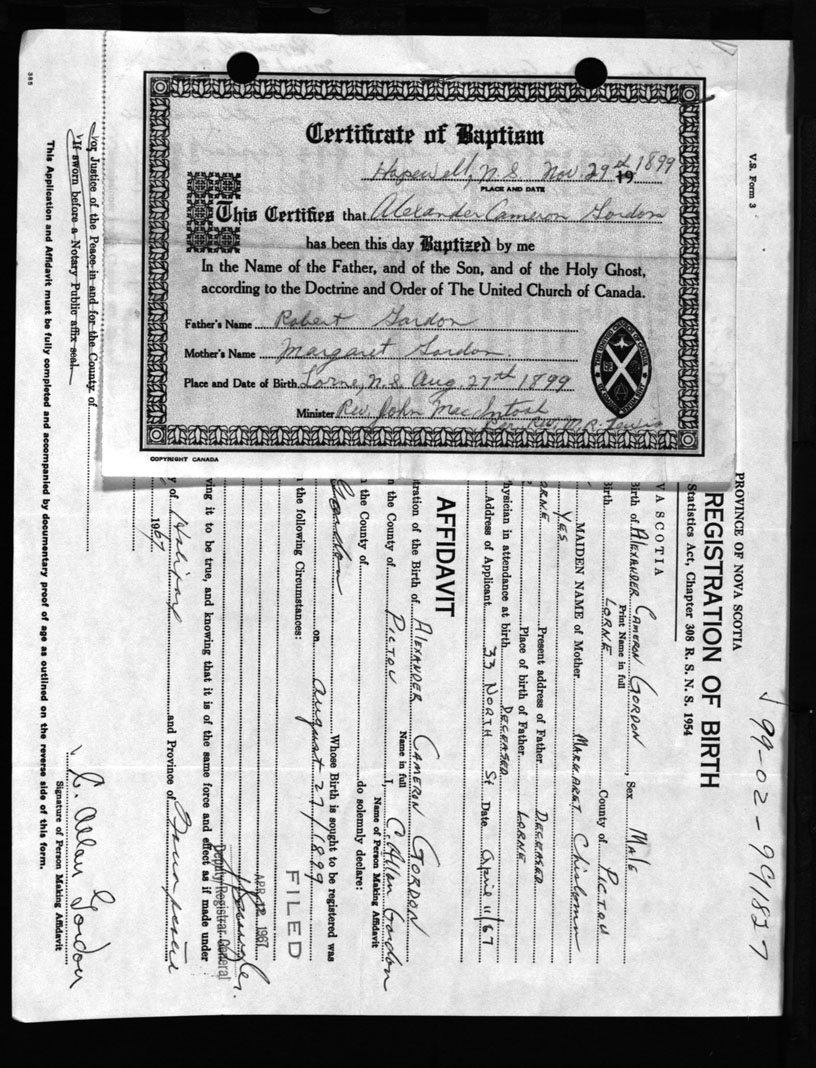 Certificate of Baptism
Hopewell, N.S. Nov. 29th 19 1899
PLACE AND DATE
This Certifies that Alexander Cameron Gordon
has been this day Baptized by me
In the Name of the Father, and of the Son, and of the Holy Ghost,
according to the Doctrine and Order of The United Church of Canada.
Father's Name Robert Gordon
Mother's Name Margaret Gordon
Place and Date of Birth Lorne, N.S. Aug. 27th 1899
Minister Rev. John MacIntosh
Per Rev. M. R. Lewis
COPYRIGHT CANADA
V.S. Form 3
√ 99-02-991827
PROVINCE OF NOVA SCOTIA
REGISTRATION OF BIRTH
Statistics Act, Chapter 308 R. S. N. S. 1954
VA SCOTIA
Birth of ALEXANDER CAMERON GORDON, Sex MALE
Print Name in full
Birth LORNE County of PICTOU
MAIDEN NAME of Mother MARGARET Chisholm
YES
ORNE Present address of Father DECEASED
Place of birth of Father LORNE
hysician in attendance at birth DECEASED
Address of Applicant 33 NORTH St Date April 11/67
AFFIDAVIT
tration of the Birth of ALEXANDER CAMERON GORDON
Name in full
n the County of PICTOU I, C. Allan Gordon
Name of Person Making Affidavit
n the County of do solemnly declare:
Gordon Whose Birth is sought to be registered was
on August 27/1899
n the following Circumstances:
FILED
APR 12 1967
Deputy Registrar General
ving it to be true, and knowing that it is of the same force and effect as if made under
y of Halifax and Province of
1967
C. Allan Gordon
Signature of Person Making Affidavit
√or Justice of the Peace in and for the County of
√If sworn before a Notary Public affix seal
This Application and Affidavit must be fully completed and accompanied by documentary proof of age as outlined on the reverse side of this form.
385